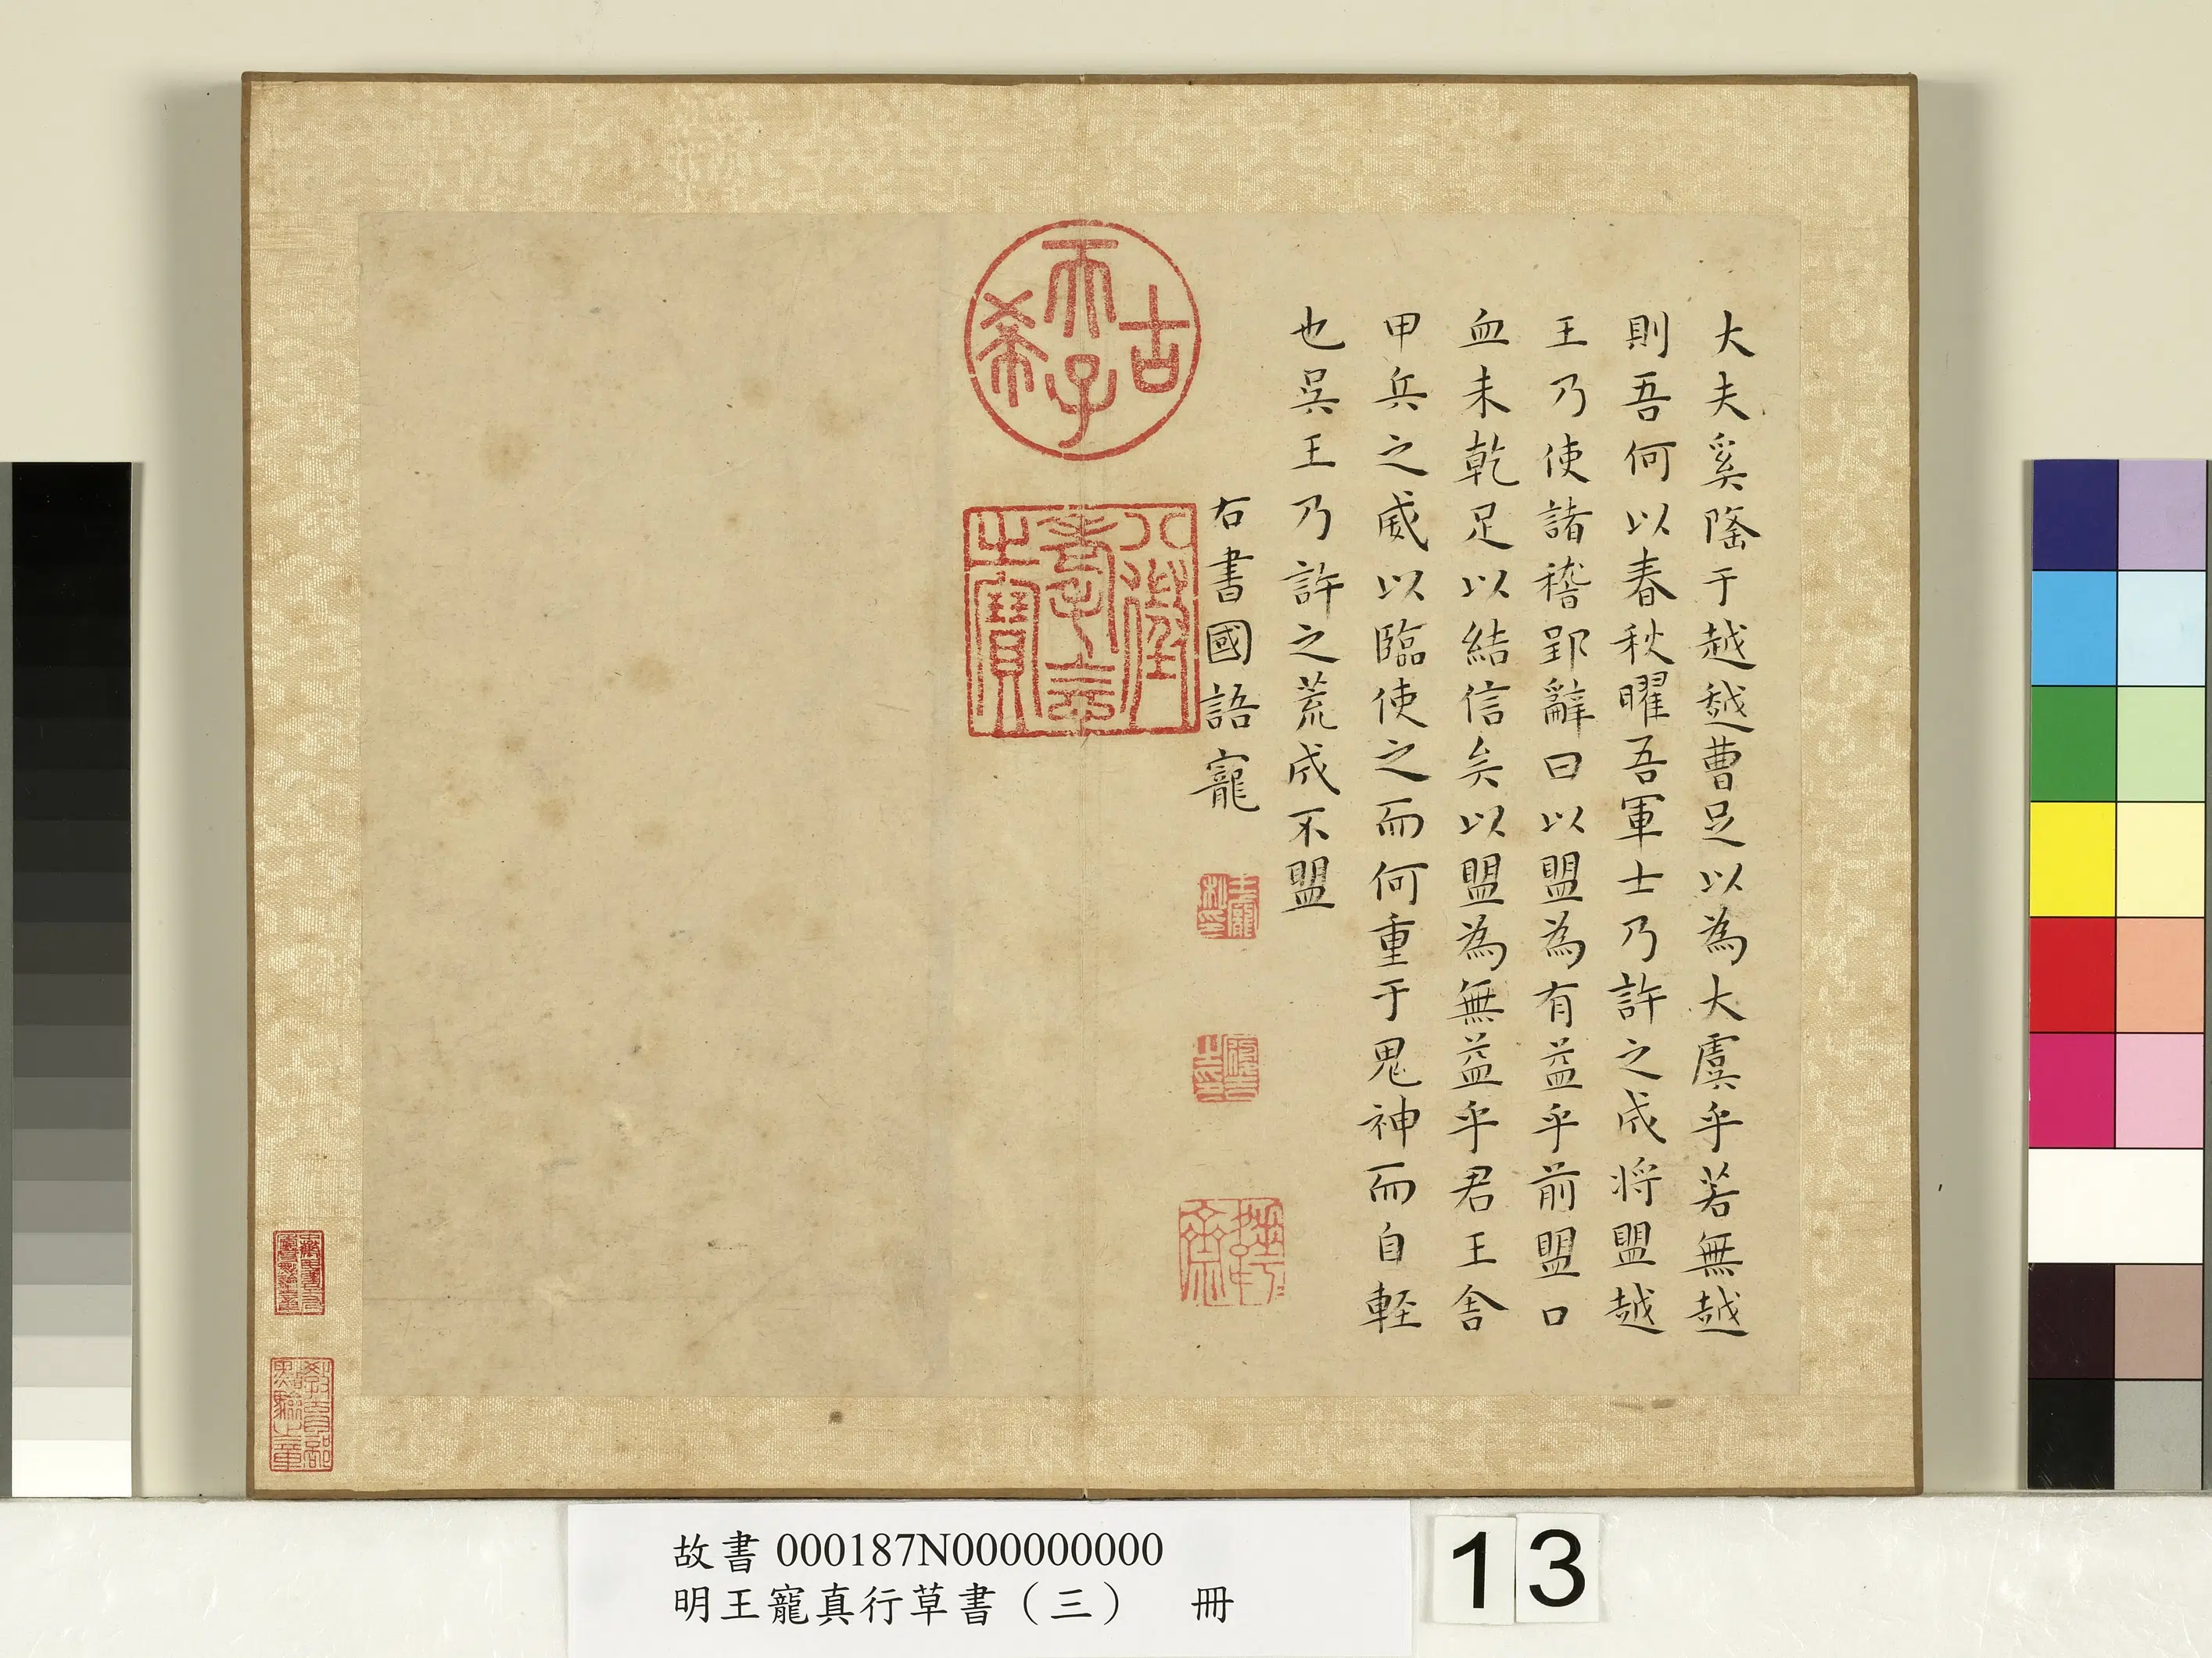 大夫奚隆于越越曹足以為大虞乎若無越
則吾何以春秋曜吾軍士乃許之成將盟越
王乃使諸稽郢辭曰以盟為有益乎前盟口
血未乾足以結信矣以盟為無益乎君王舍
甲兵之威以臨使之而何重于鬼神而自輕
也吳王乃許之荒成不盟
右書國語寵
王寵私印
古希天子
八徵耄念之寶
教育部點驗之章
故書000187N000000000
明王寵真行草書（三）　冊
13